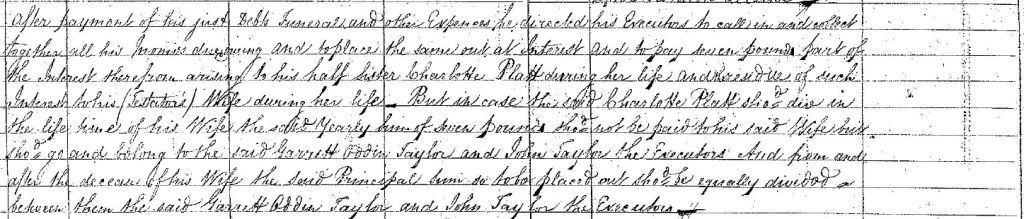 after payment of his just Debts Funeral and other Expences he directed his Executors to call in and collect
together all his monies due owing and to place the same out at Interest and to pay seven pounds part of
the Interest therefrom arising to his half Sister Charlotte Platt during her life and the residue of such
Interest to his (Testator's) Wife during her life – But in case the said Charlotte Platt sho.d die in
the life time of his Wife the said Yearly sum of seven pounds sho.d not be paid to his said Wife but
sho.d go and belong to the said Garrett Oddin Taylor and John Taylor the Executors And from and
after the decease of his Wife the said Principal sum so to be placed out sho.d be equally divided
between them the said Garrett Oddin Taylor and John Taylor the Executors